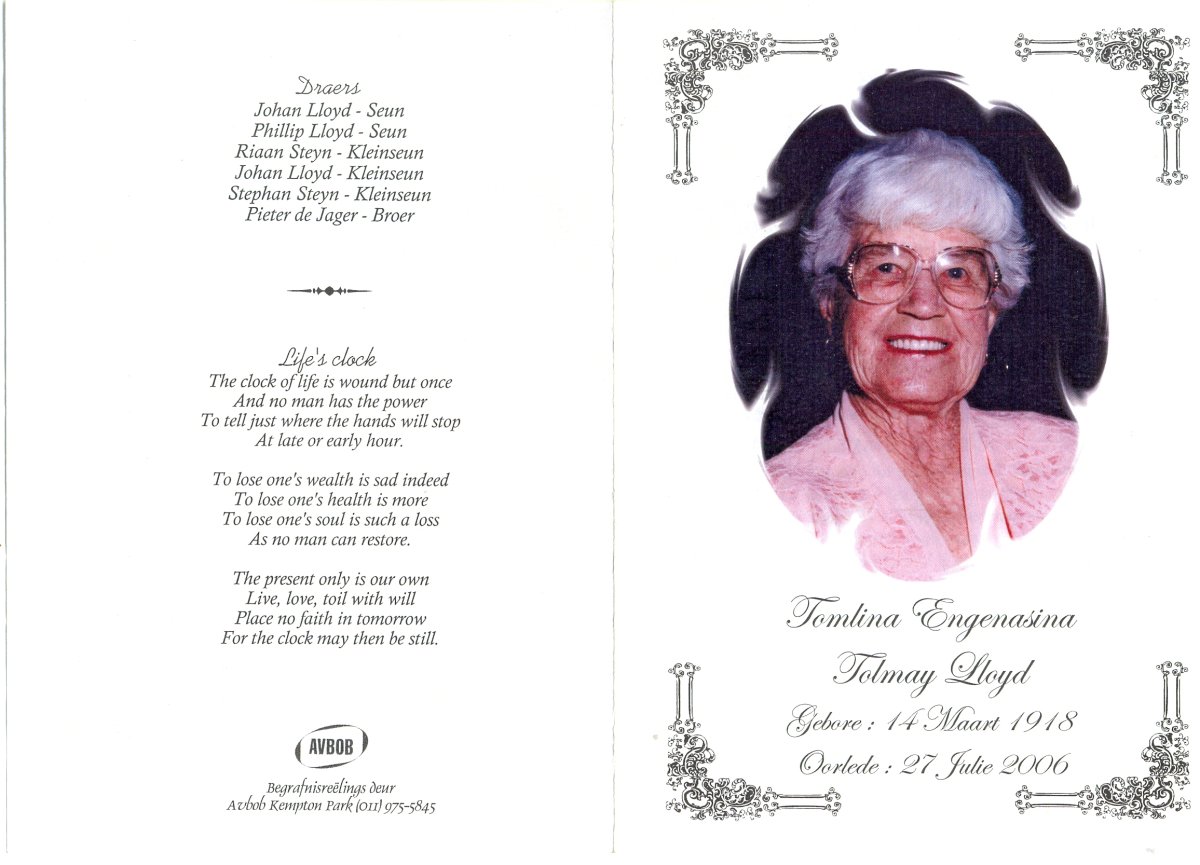 Draers
Johan Lloyd - Seun
Phillip Lloyd - Seun
Riaan Steyn - Kleinseun
Johan Lloyd - Kleinseun
Stephan Steyn - Kleinseun
Pieter de Jager - Broer
Life's clock
The clock of life is wound but once
And no man has the power
To tell just where the hands will stop
At late or early hour.
To lose one's wealth is sad indeed
To lose one's health is more
To lose one's soul is such a loss
As no man can restore.
The present only is our own
Live, love, toil with will
Place no faith in tomorrow
For the clock may then be still.
AVBOB
Begrafnisreëlings deur
Avbob Kempton Park (011) 975-5845
Tomlina Engenasina
Tolmay Lloyd
Gebore : 14 Maart 1918
Oorlede : 27 Julie 2006